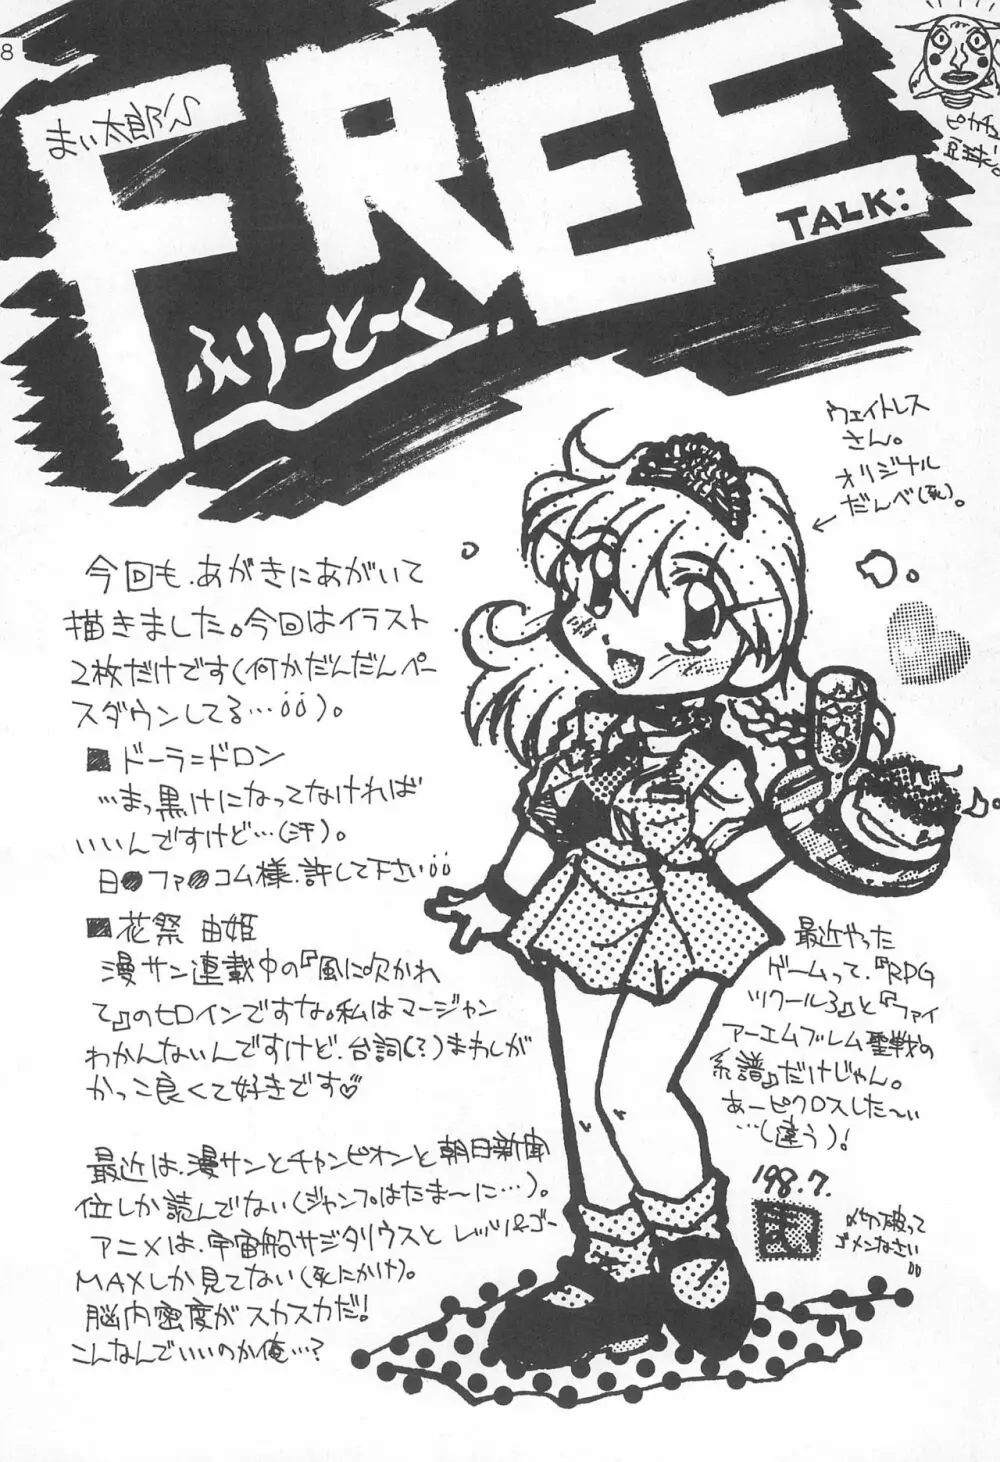 8
まい太郎's
FREE
TALK:
ふりーとーく
ウェイトレス
さん。
オリジナル
だんべ(死)。
今回も、あがきにあがいて
描きました。今回はイラスト
2枚だけです(何かだんだんペー
スダウンしてる…öö)。
■ドーラ=ドロン
…まっ黒けになってなければ
いいんですけど…(汗)。
日●ファ●コム様、許して下さいöö
■花祭 由姫
漫サン連載中の『風に吹かれ
て』のヒロインですな。私はマージャン
わかんないんですけど、台詞(?)まわしが
かっこ良くて好きです♡
最近は、漫サンとチャンピオンと朝日新聞
位しか読んでない(ジャンプはたま〜に…)。
アニメは、宇宙船サジタリウスとレッツ&ゴー
MAXしか見てない(死にかけ)。
脳内密度がスカスカだ!
こんなんでいいのか俺…?
最近やった
ゲームって、『RPG
ツクール3』と『ファイ
アーエムブレム聖戦の
系譜』だけじゃん。
あーピクロスした〜い
…(違う)!
'98.7.
〆切破って
ゴメンなさい
öö